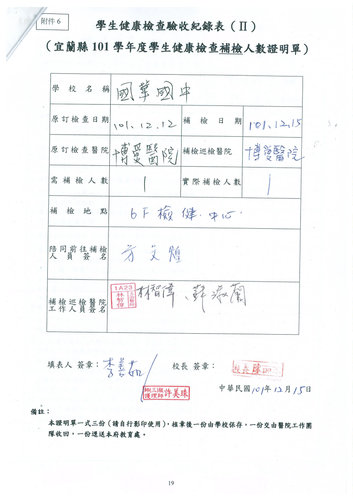 附件 6
學生健康檢查驗收紀錄表（II）
（宜蘭縣 101 學年度學生健康檢查補檢人數證明單）
學校名稱 國華國中
原訂檢查日期 101.12.12 補檢日期 101.12.15
原訂檢查醫院 博愛醫院 補檢巡檢醫院 博愛醫院
需補檢人數 1 實際補檢人數 1
補檢地點 6F 檢健中心
陪同前往補檢
人員簽名
補檢巡檢醫院
工作人員簽名 1A23 林智偉
填表人 簽章： 校長 簽章：
護理師 許美珠
中華民國 101 年 12 月 15 日
備註：
本證明單一式三份（請自行影印使用），核章後一份由學校保存，一份交由醫院工作團
隊收回，一份逕送本府教育處。
19